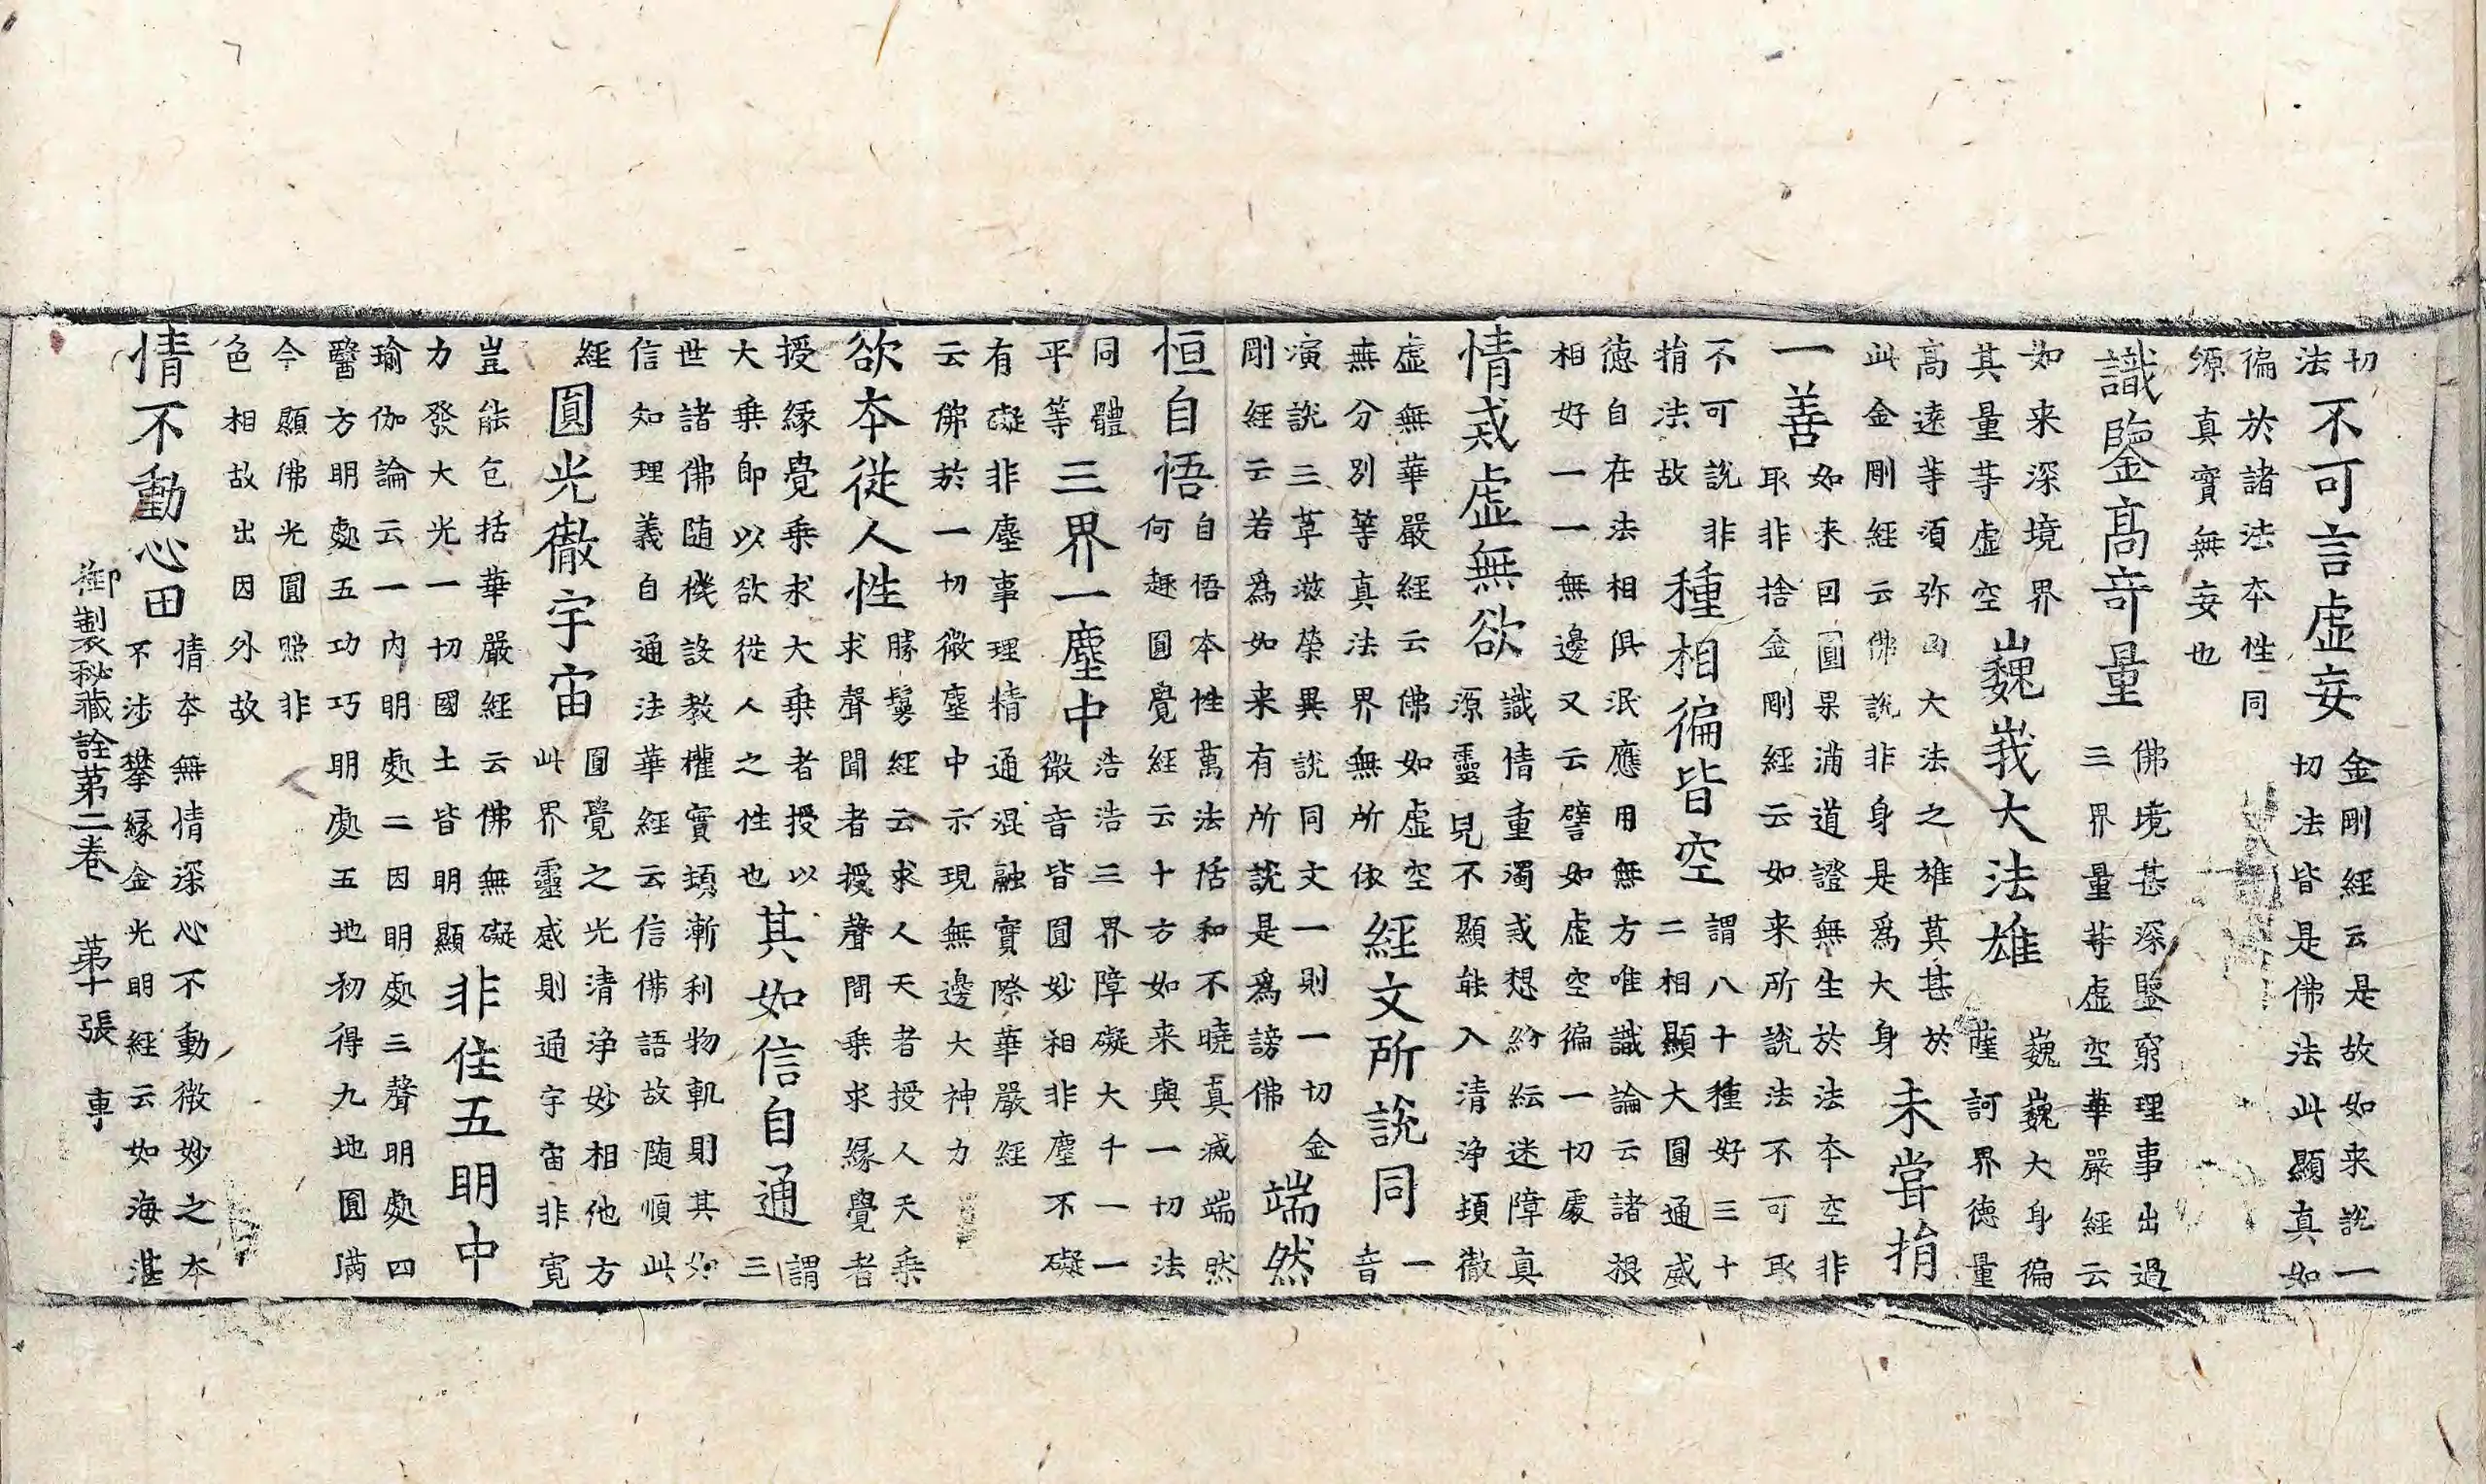 切
法
不可言虛妄
金剛經云是故如来說一
切法皆是佛法此顯真如
徧於諸法本性同
源真實無妄也
識鑒髙竒量
佛境甚深鑒窮理事出過
三界量等虛空華嚴經云
如来深境界
其量等虛空
巍峩大法雄
巍巍大身徧
薩訶界德量
高逺等須弥山大法之雄莫甚於
此金剛經云佛說非身是為大身
未甞捎
一善
如来因圓果滿道證無生於法本空非
取非捨金剛經云如来所說法不可取
不可說非
捎法故
種相徧皆空
謂八十種好三十
二相顯大圓通威
德自在法相俱泯應用無方唯識論云諸根
相好一一無邊又云譬如虛空徧一切處
情惑虛無欲
識情重濁惑想紛紜迷障真
源靈見不顯能入清浄頓徹
虛無華嚴經云佛如虛空
無分別等真法界無所依
經文所說同
一
音
演說三草滋榮異說同文一則一切金
剛經云若為如来有所說是為謗佛
端然
恒自悟
自悟本性萬法括和不曉真滅端然
何趣圓覺經云十方如来與一切法
同體
平等
三界一塵中
浩浩三界障礙大千一一
微音皆圓妙相非塵不礙
有礙非塵事理精通混融實際華嚴經
云佛於一切微塵中示現無邊大神力
欲本從人性
勝鬘經云求人天者授人天乗
求聲聞者授聲聞乗求緣覺者
授緣覺乗求大乗者授以
大乗即以欲從人之性也
其如信自通
謂
三
世諸佛随機設教權實頓漸利物軌則其如
信知理義自通法華經云信佛語故随順此
經
圓光徹宇宙
圓覺之光清浄妙相他方
此界靈感則通宇宙非寛
豈能包括華嚴經云佛無礙
力發大光一切國土皆明顯
非住五明中
瑜伽論云一内明處二因明處三聲明處四
醫方明處五功巧明處五地初得九地圓滿
今顯佛光圓照非
色相故出因外故
情不動心田
情本無情深心不動微妙之本
不涉攀緣金光明經云如海湛
御製秘藏詮第二卷 第十張 車